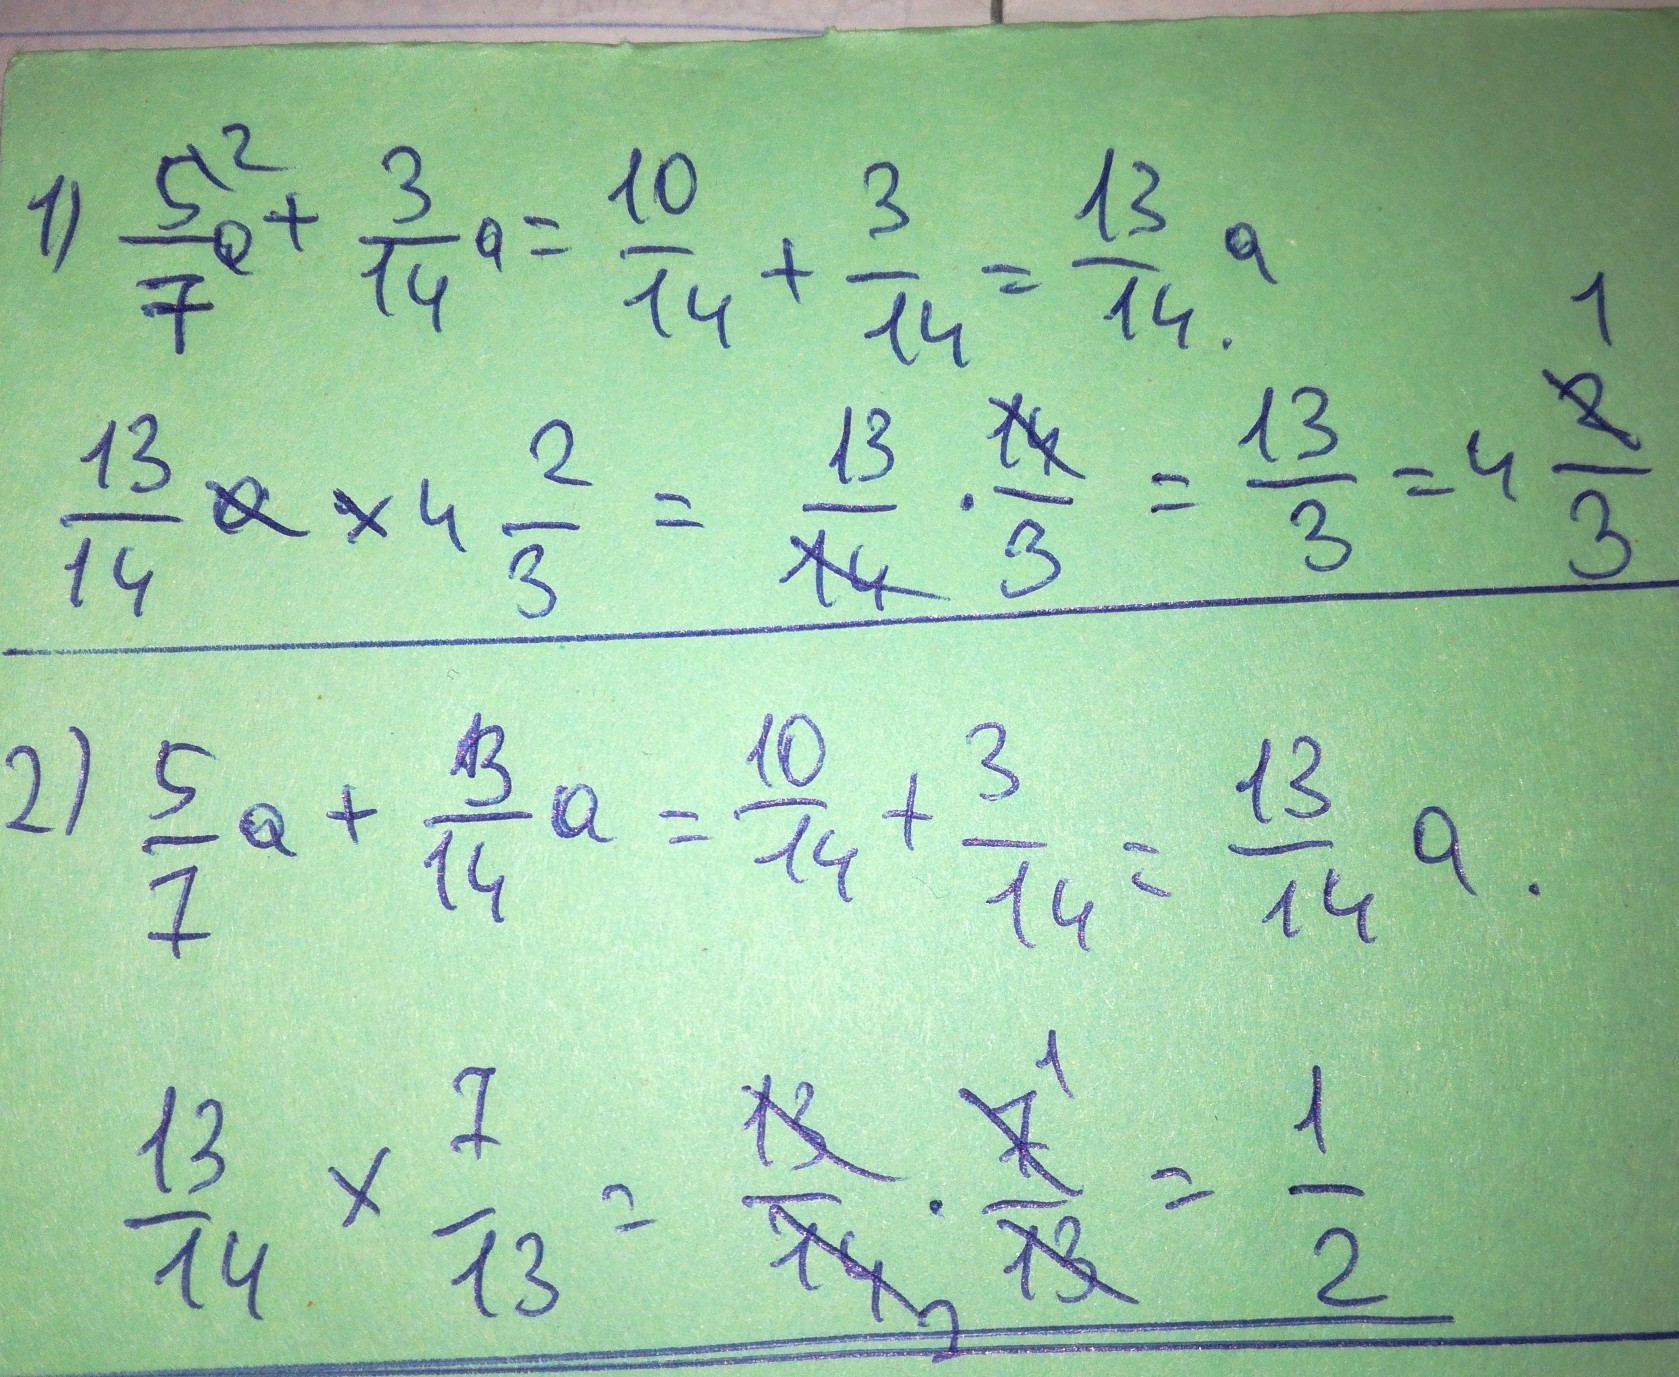 1) 5²/7 a + 3/14 a = 10/14 + 3/14 = 13/14 a.
13/14 a × 4 2/3 = 13/14 · 14/3 = 13/3 = 4 1/3
2) 5/7 a + 3/14 a = 10/14 + 3/14 = 13/14 a.
13/14 × 7/13 = 13/14 2 · 7 1/13 = 1/2